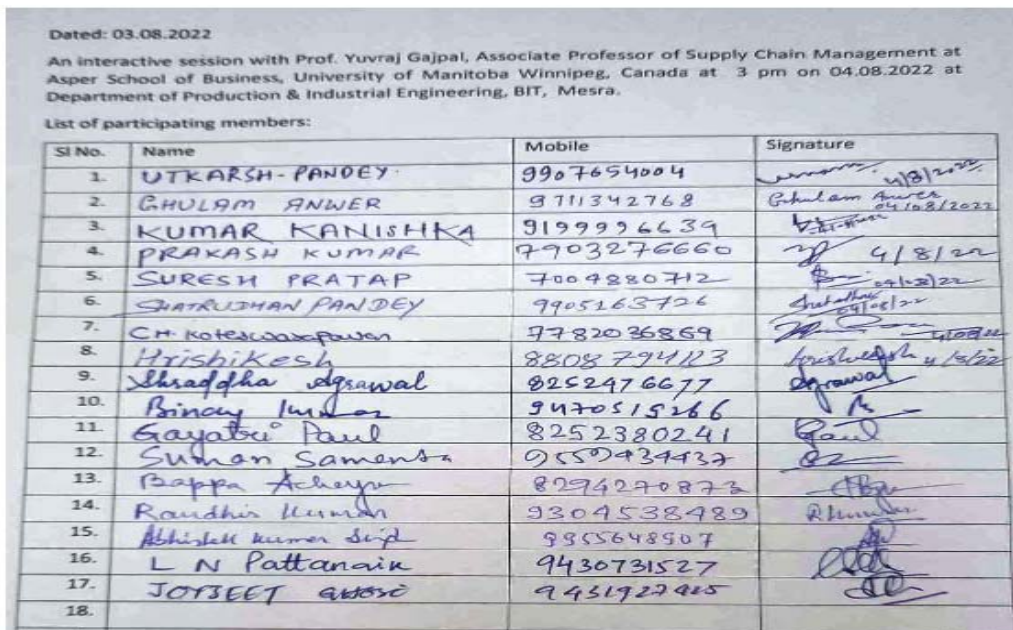 Dated: 03.08.2022
An interactive session with Prof. Yuvraj Gajpal, Associate Professor of Supply Chain Management at
Asper School of Business, University of Manitoba Winnipeg, Canada at 3 pm on 04.08.2022 at
Department of Production & Industrial Engineering, BIT, Mesra.
List of participating members:
Sl No. Name Mobile Signature
1. UTKARSH-PANDEY. 9907654004 4/8/2022
2. GHULAM ANWER 9711342768 Ghulam Anwer 04/08/2022
3. KUMAR KANISHKA 9199996639
4. PRAKASH KUMAR 7903276660 4/8/22
5. SURESH PRATAP 7004880712 04/08/22
6. SHATRUDHAN PANDEY 9905163726 04/08/22
7. CH. Koteswarapavan 7782036869 4/08/22
8. Hrishikesh 8808794123 4/8/22
9. Shraddha Agrawal 8252476677 Agrawal
10. Binay Kumar 9470515266
11. Gayatri Paul 8252380241 Paul
12. Suman Samanta 9559434437
13. Bappa Acharya 8294270873
14. Randhir Kumar 9304538489
15. Abhishek Kumar Singh 9955648507
16. L N Pattanaik 9430731527
17. JOYJEET 
18.